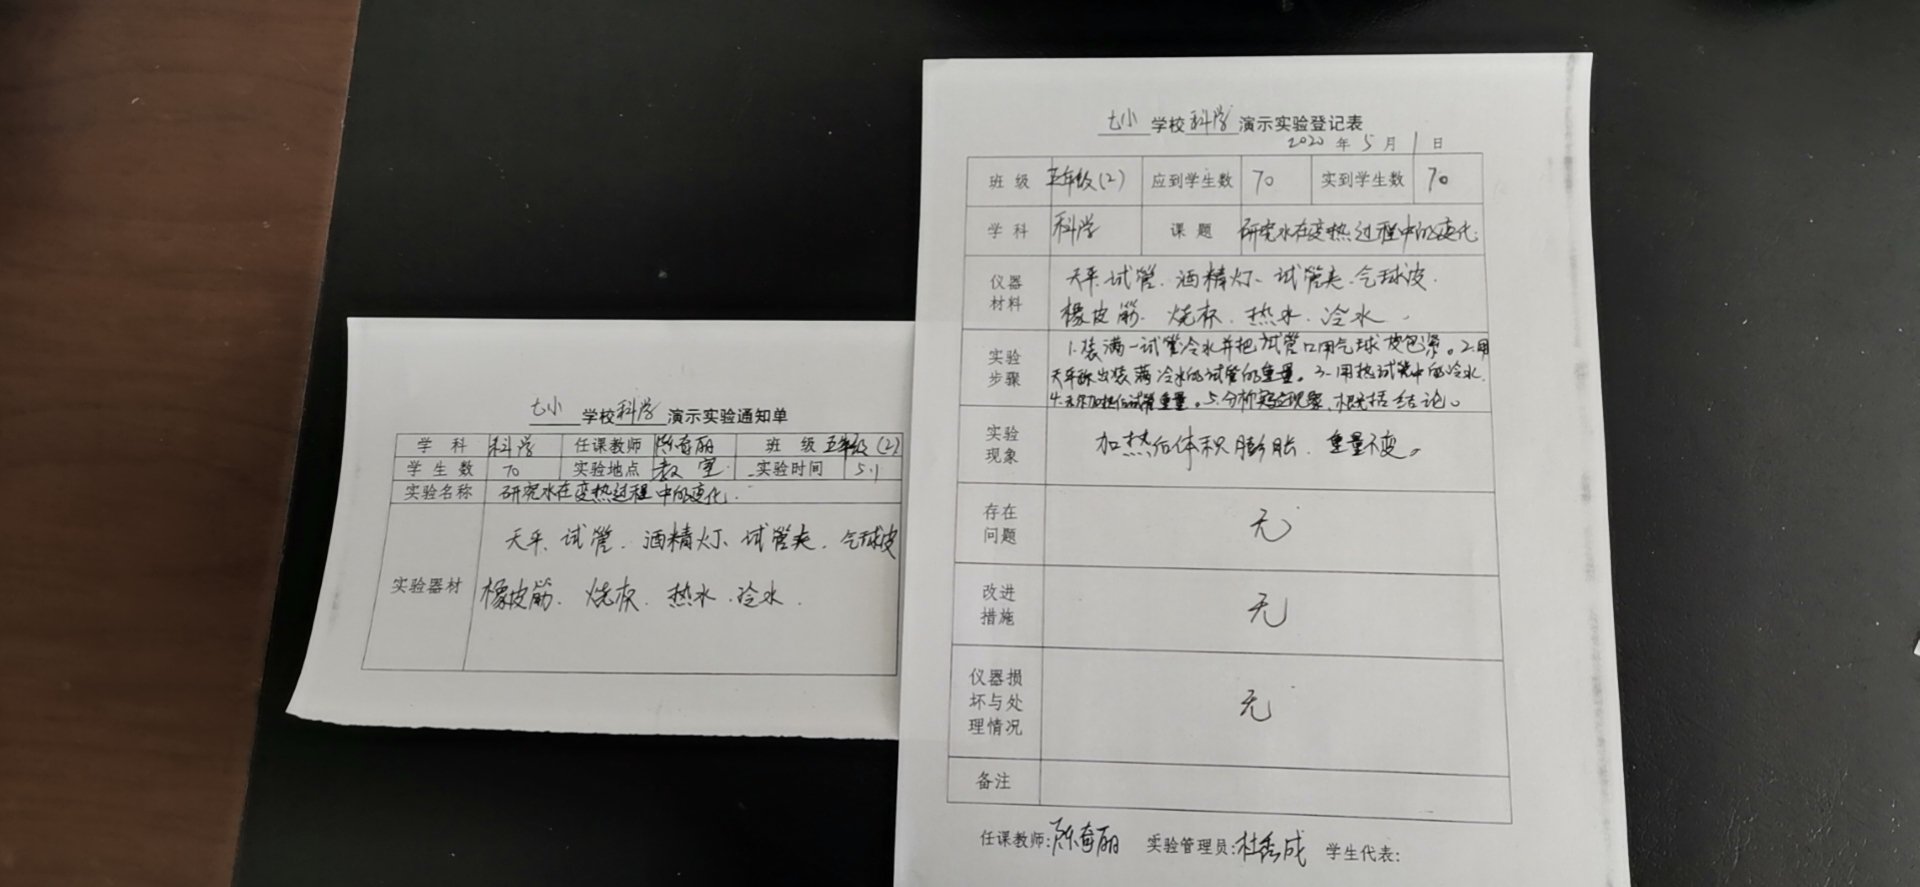 七小 学校 科学 演示实验通知单
学 科 科学 任课教师 陈育丽 班 级 五年级(2)
学生数 70 实验地点 教室 实验时间 5.1
实验名称 研究水在变热过程中的变化.
天平、试管、酒精灯、试管夹、气球皮
实验器材 橡皮筋、烧杯、热水、冷水.
七小 学校 科学 演示实验登记表
2020 年 5 月 1 日
班 级 五年级(2) 应到学生数 70 实到学生数 70
学 科 科学 课 题 研究水在变热过程中的变化.
仪器 天平、试管、酒精灯、试管夹、气球皮.
材料 橡皮筋、烧杯、热水、冷水.
1.装满一试管冷水并把试管口用气球皮包紧。2.用
实验步骤 天平称出装满冷水的试管的重量。3.用热试管中的冷水.
4. 加热后试管重量。5.分析实验现象,概括结论。
实验现象 加热后体积膨胀、重量不变。
存在问题 无
改进措施 无
仪器损坏与处理情况 无
备注
任课教师:陈育丽 实验管理员:杜秀成 学生代表: